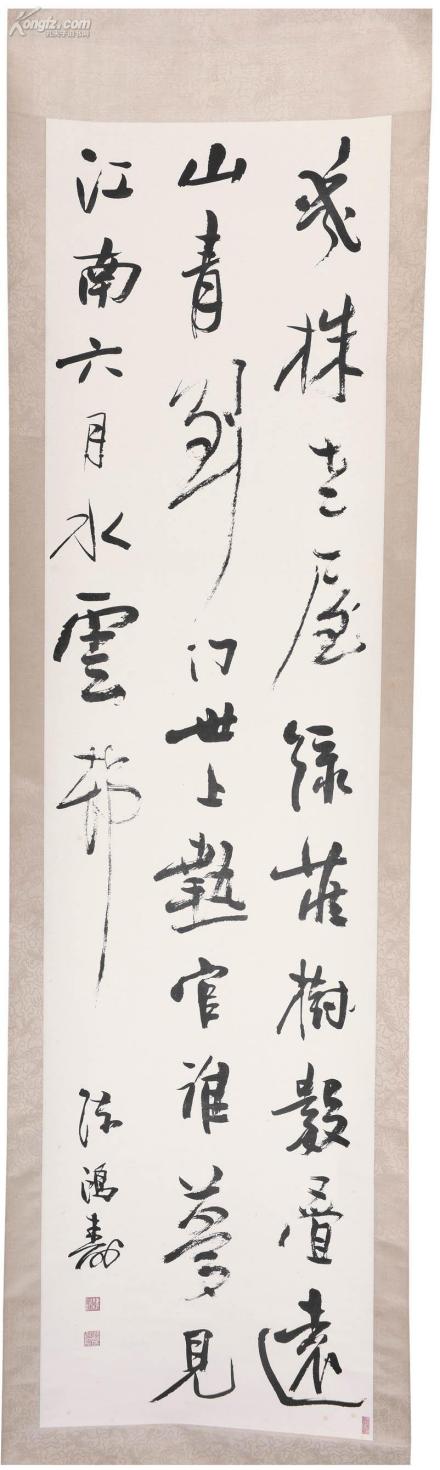 Kongfz.com
孔夫子旧书网
幾株老屋綠藏樹數疊遠
山青到門世上熱官誰夢見
江南六月水雲邨
陳鴻壽